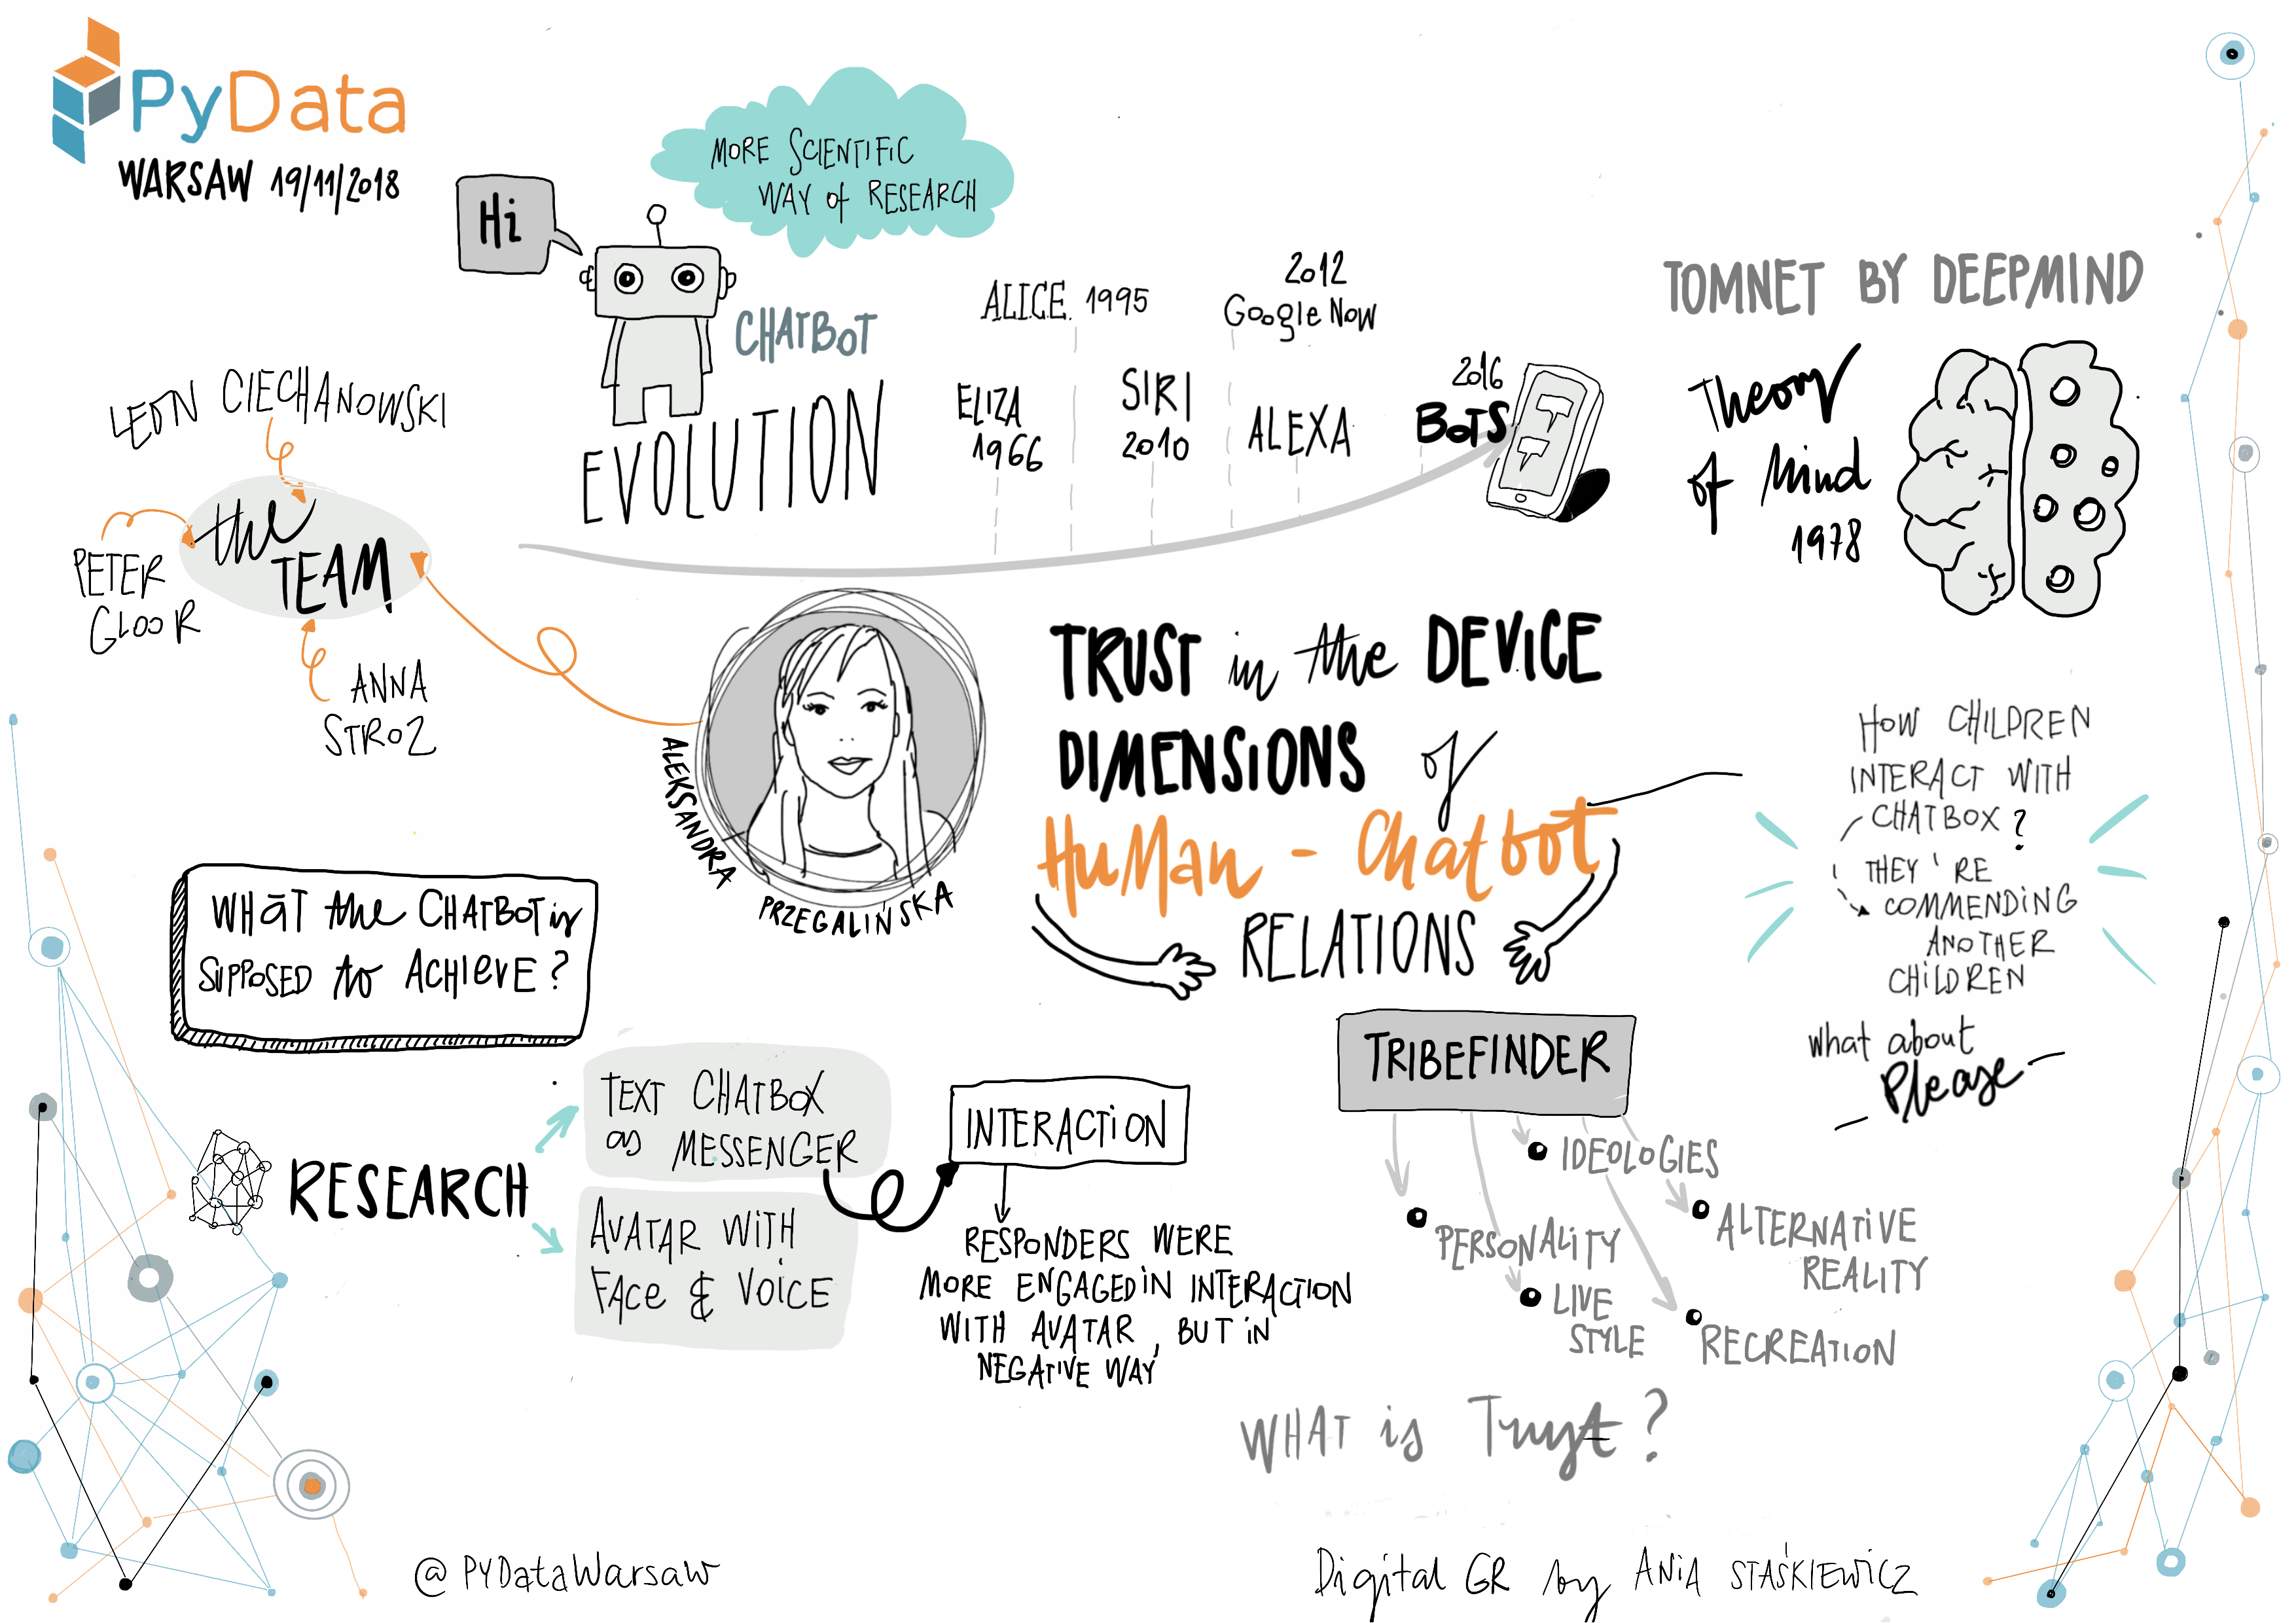 PyData
WARSAW 19/11/2018
Hi
MORE SCIENTIFIC
WAY of RESEARCH
CHATBOT
EVOLUTION
ELIZA
1966
ALICE 1995
SIRI
2010
2012
Google Now
ALEXA
2016
BOTS
TOMNET BY DEEPMIND
Theory
of Mind
1978
LEON CIECHANOWSKI
the
TEAM
PETER
GLOOR
ANNA
STROZ
ALEKSANDRA
PRZEGALIŃSKA
TRUST in the DEVICE
DIMENSIONS of
HuMan - Chatbot
RELATIONS
HOW CHILDREN
INTERACT WITH
CHATBOX?
THEY'RE
COMMENDING
ANOTHER
CHILDREN
What about
Please
WHAT the CHATBOT is
SUPPOSED to ACHIEVE?
RESEARCH
TEXT CHATBOX
as MESSENGER
AVATAR WITH
FACE & VOICE
INTERACTION
RESPONDERS WERE
MORE ENGAGED IN INTERACTION
WITH AVATAR, BUT IN
NEGATIVE WAY
TRIBEFINDER
IDEOLOGIES
PERSONALITY
ALTERNATIVE
REALITY
LIVE
STYLE
RECREATION
WHAT is Trust?
@PYDataWarsaw
Digital GR by ANIA STAŚKIEWICZ